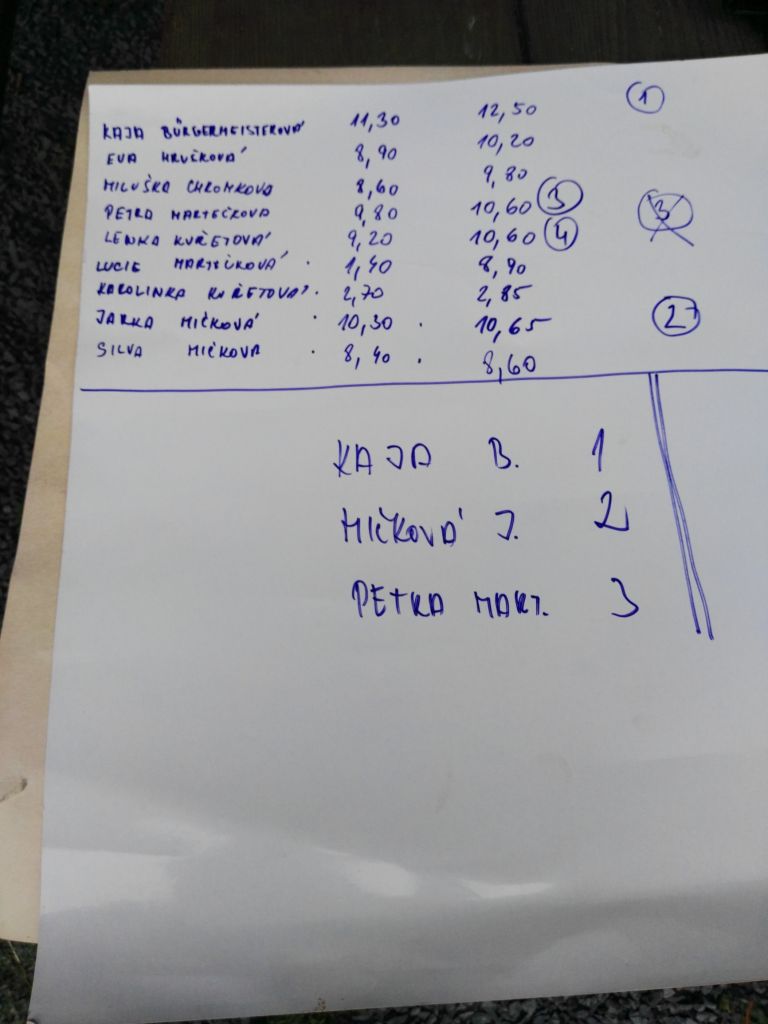 KAJA BÜRGERMEISTEROVÁ 11,30 12,50 1
EVA HRUŠKOVÁ 8,90 10,20
MILUŠKA CHROMKOVA 8,60 9,80
PETRA MARTEČKOVA 9,80 10,60 3 3
LENKA KUŘETOVÁ 9,20 10,60 4
LUCIE MARTEČKOVÁ . 1,40 8,90
KAROLINKA KUŘETOVÁ . 2,70 2,85
JARKA MIČKOVÁ . 10,30 . 10,65 2
SILVA MIČKOVA . 8,40 . 8,60
KAJA B. 1
MIČKOVÁ J. 2
PETRA MART. 3